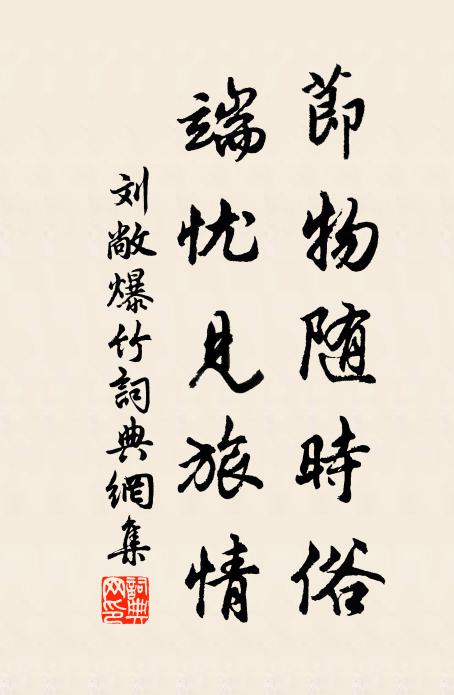 節物随時俗
端忧见旅情
刘敞爆竹詞典網集
詞典網印